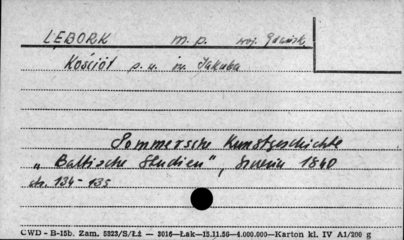 LĘBORK m. p. woj. Gdańsk
Kościół p. w. św. Jakuba
Pommersche Kunstgeschichte
„Baltische Studien", Szczecin 1840
str. 134 - 135
CWD - B-15b. Zam. 5323/S/Łź — 3016—Łak—15.11.56—4.000.000—Karton kl. IV A1/200 g